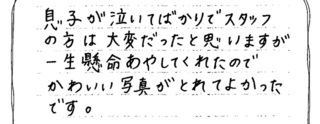 息子が泣いてばかりでスタッフ
の方は大変だったと思いますが
一生懸命あやしてくれたので
かわいい写真がとれてよかった
です。